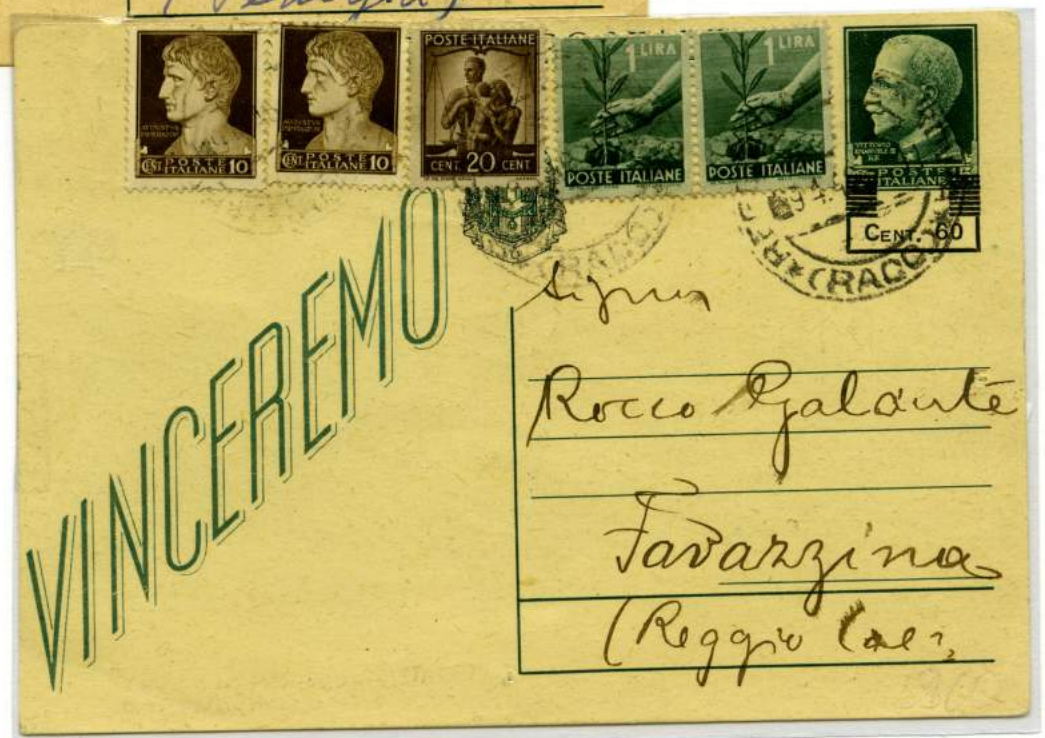 (Perugia)
AVGVSTVS
IMPERATOR
CENT. POSTE ITALIANE 10
AVGVSTVS
IMPERATOR
CENT. POSTE ITALIANE 10
POSTE ITALIANE
CENT. 20 CENT
1 LIRA
POSTE ITALIANE
1 LIRA
POSTE ITALIANE
VITTORIO
EMANUELE III
RE
POSTE
ITALIANE
CENT. 60
(RACC)
VINCEREMO
Signor
Rocco Galante
Favazzina
(Reggio Cal